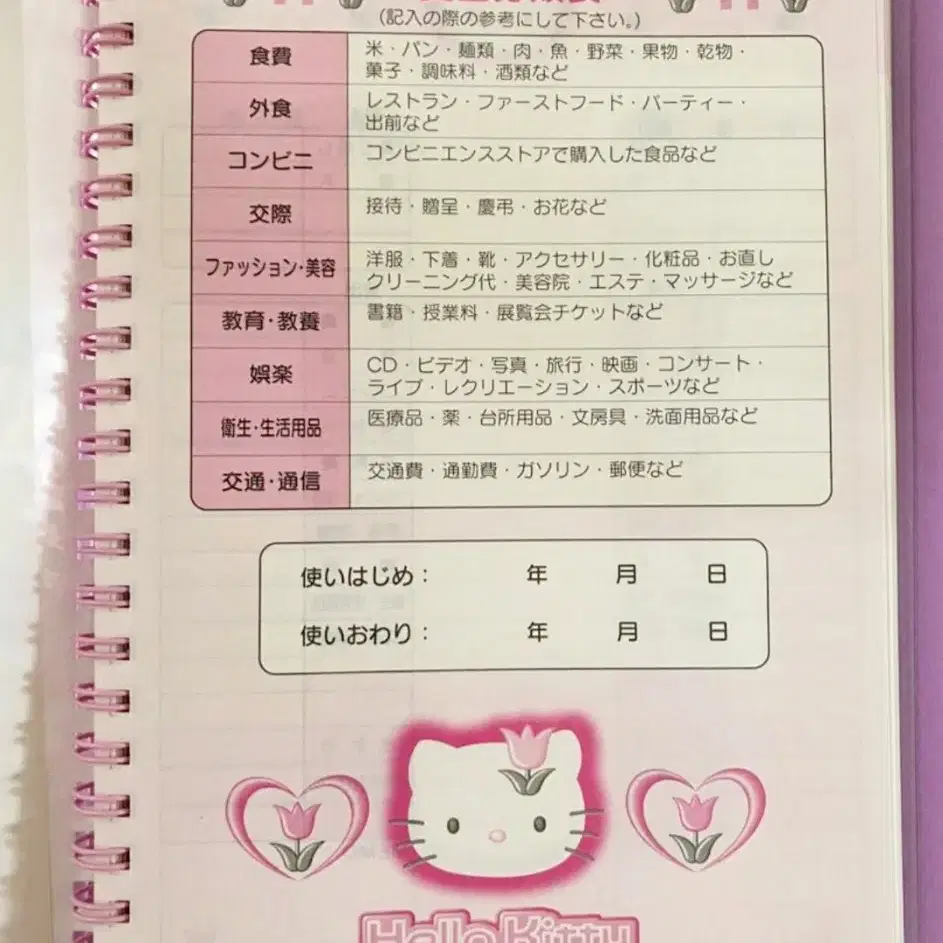 (記入の際の参考にして下さい。)
食費
米・パン・麺類・肉・魚・野菜・果物・乾物・
菓子・調味料・酒類など
外食
レストラン・ファーストフード・パーティー・
出前など
コンビニ
コンビニエンスストアで購入した食品など
交際
接待・贈呈・慶弔・お花など
ファッション・美容
洋服・下着・靴・アクセサリー・化粧品・お直し
クリーニング代・美容院・エステ・マッサージなど
教育・教養
書籍・授業料・展覧会チケットなど
娯楽
CD・ビデオ・写真・旅行・映画・コンサート・
ライブ・レクリエーション・スポーツなど
衛生・生活用品
医療品・薬・台所用品・文房具・洗面用品など
交通・通信
交通費・通勤費・ガソリン・郵便など
使いはじめ： 年 月 日
使いおわり： 年 月 日
Hello Kitty